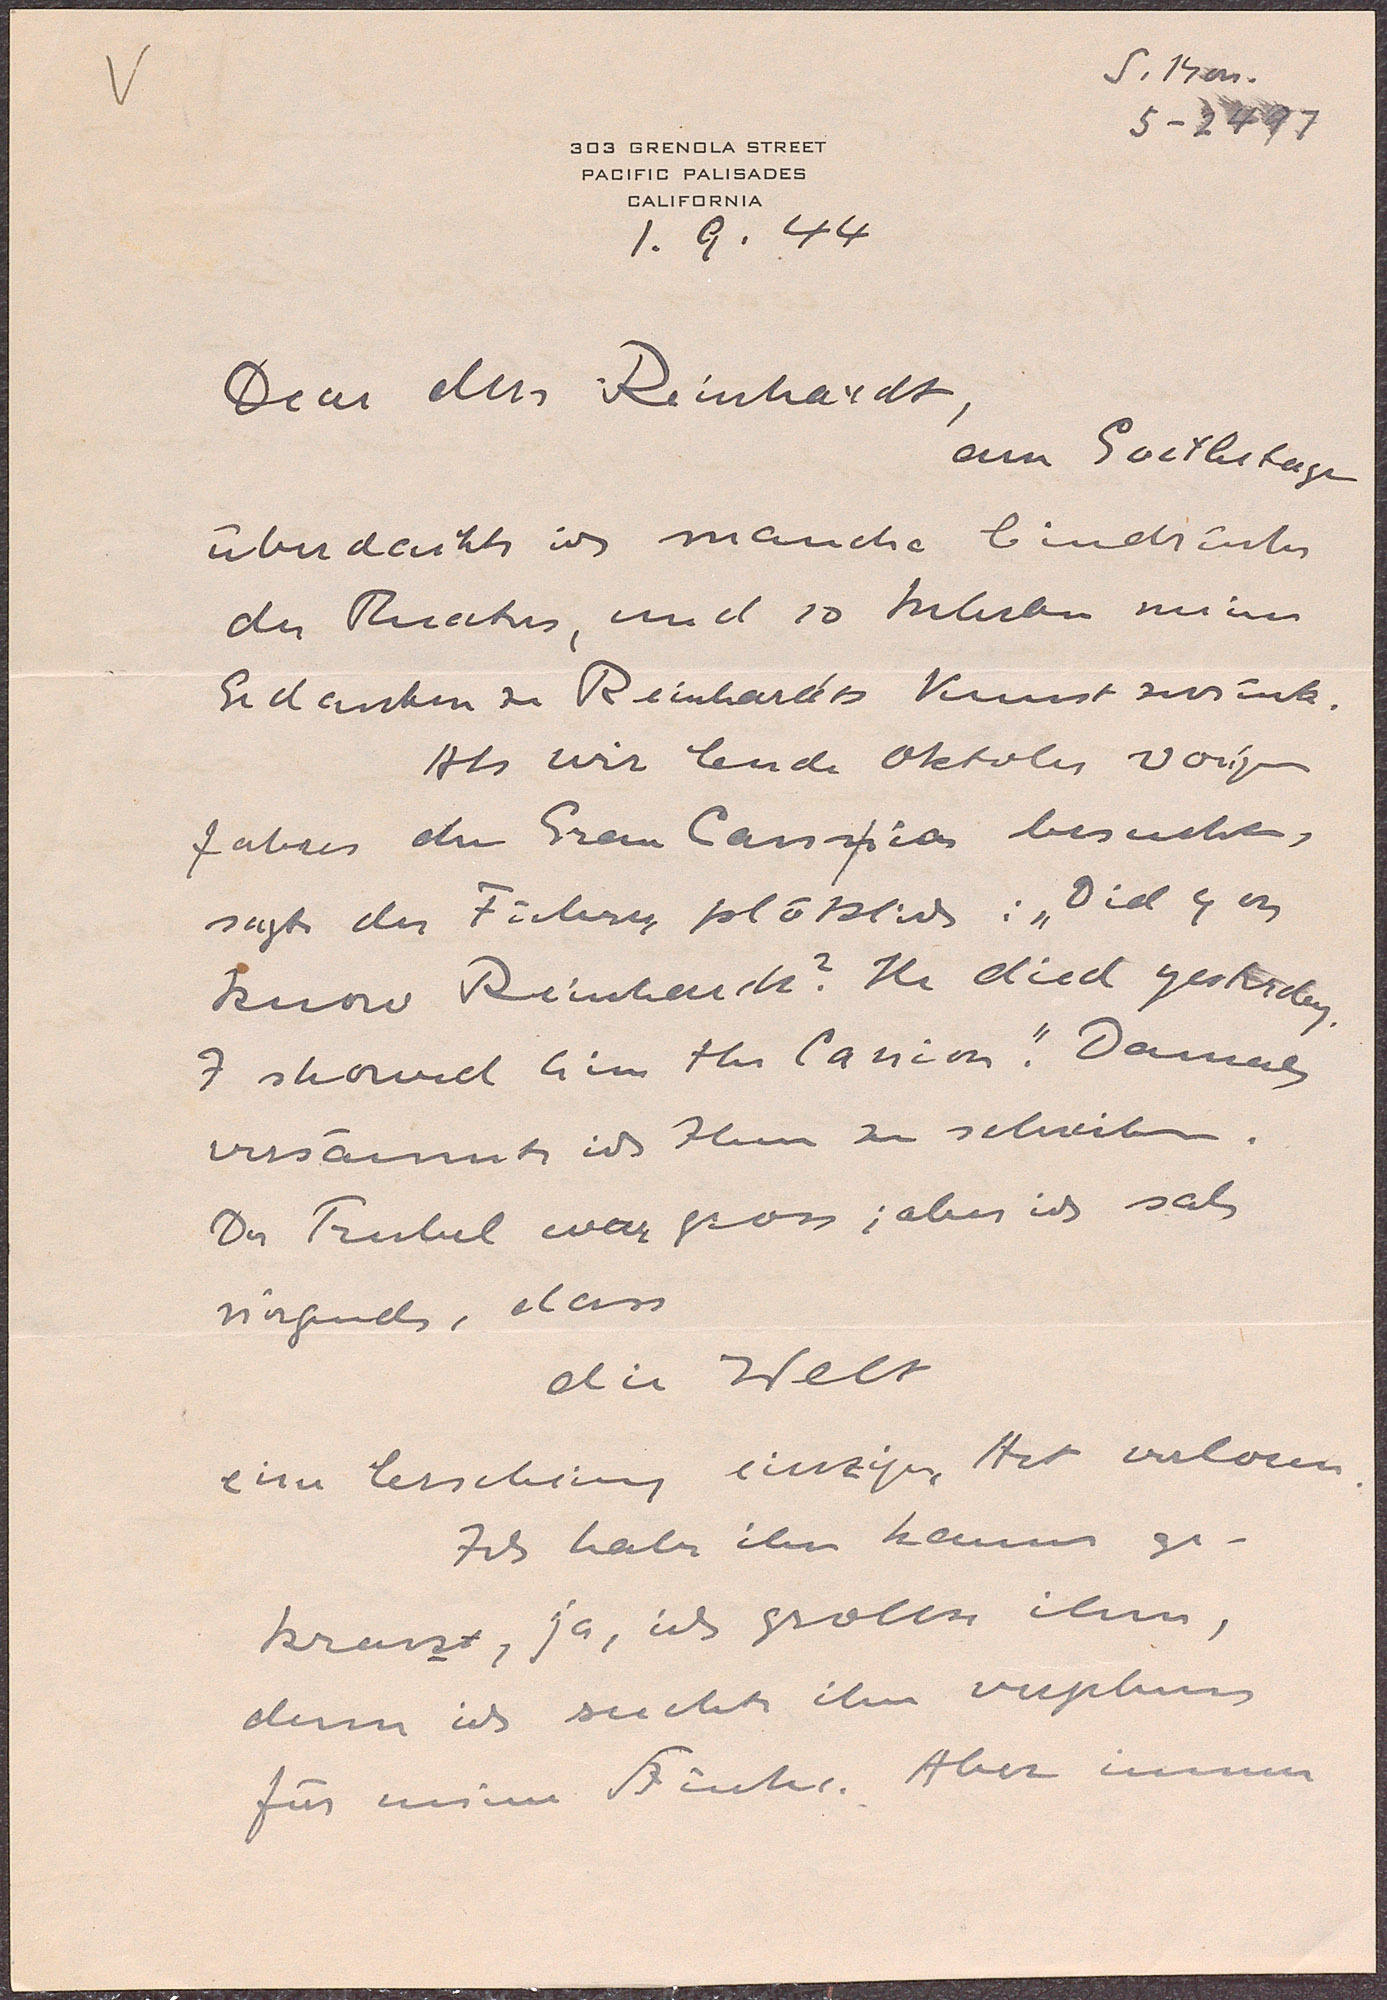 V
S. Mon.
5-2497
303 GRENOLA STREET
PACIFIC PALISADES
CALIFORNIA
1. 9. 44
Dear Mrs Reinhardt,
am Goethetage
überdachte ich manche Eindrücke
des Theaters, und so kehrten meine
Gedanken zu Reinhardts Kunst zurück.
Als wir Ende Oktober vorigen
Jahres den Gran Canion besuchten,
sagte der Führer plötzlich: „Did you
know Reinhardt? He died yesterday.
I showed him the Canion." Damals
versäumte ich Ihnen zu schreiben.
Der Trubel war gross; aber ich sah
nirgends, dass
die Welt
eine Erscheinung einziger Art verloren.
Ich habe ihn kaum ge-
kannt, ja, ich grollte ihm,
denn ich suchte ihn vergebens
für meine Stücke. Aber immer